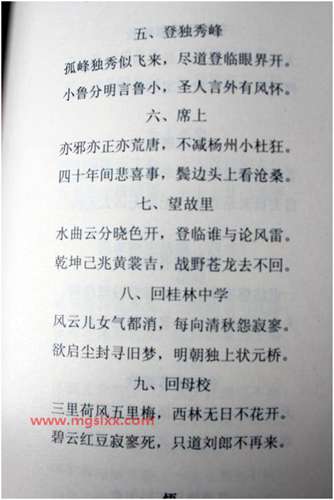 五、登独秀峰
孤峰独秀似飞来，尽道登临眼界开。
小鲁分明言鲁小，圣人言外有风怀。
六、席上
亦邪亦正亦荒唐，不减杨州小杜狂。
四十年间悲喜事，鬓边头上看沧桑。
七、望故里
水曲云分晓色开，登临谁与论风雷。
乾坤己兆黄裳吉，战野苍龙去不回。
八、回桂林中学
风云儿女气都消，每向清秋怨寂寥。
欲启尘封寻旧梦，明朝独上状元桥。
九、回母校
三里荷风五里梅，西林无日不花开。
www.mgsixx.com
碧云红豆寂寥死，只道刘郎不再来。